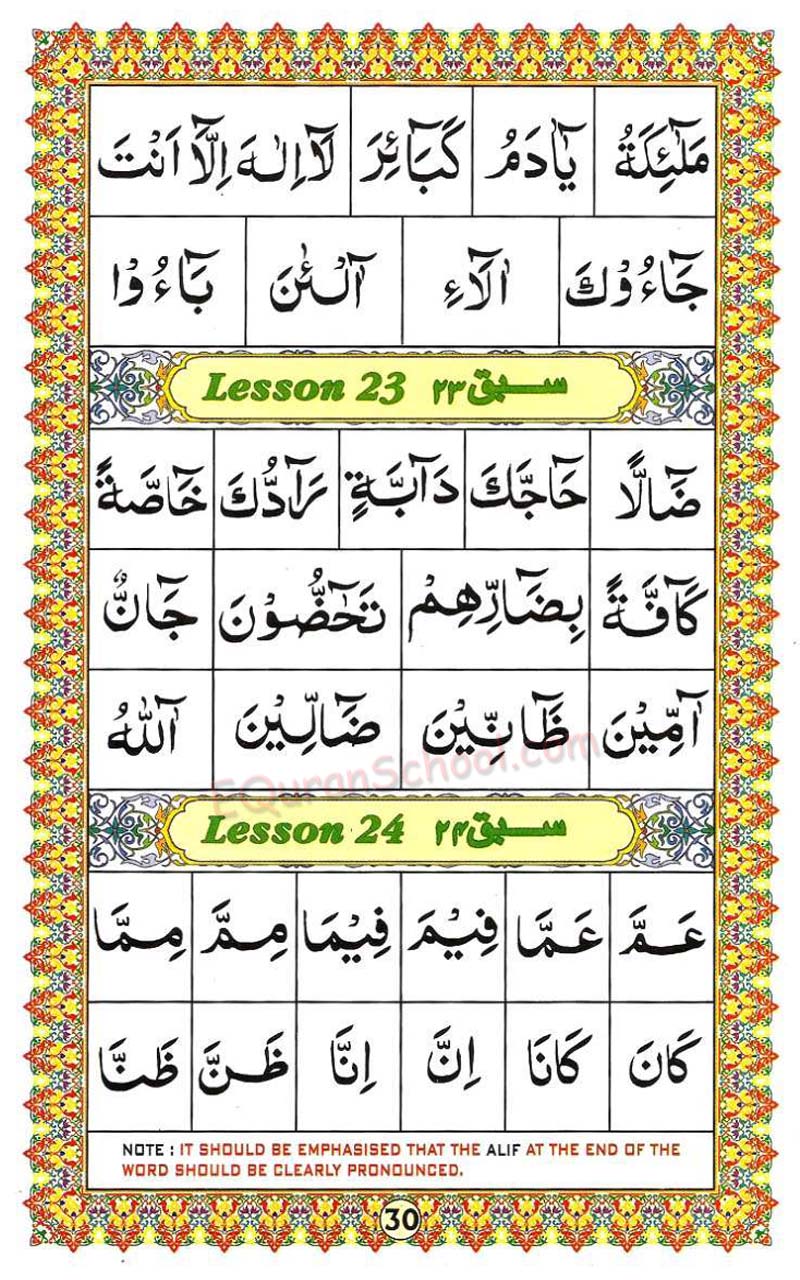 مَلٰٓئِكَةُ يٰٓاٰدَمُ كَبَآئِرَ لَآ اِلٰهَ اِلَّآ اَنْتَ
جَآءُوْكَ اٰلَآءِ آلْـٰٔنَ بَآءُوْا
Lesson 23 سبق ۲۳
ضَآلًّا حَآجَّكَ دَآبَّةٍ رَآدُّكَ خَآصَّةً
كَآفَّةً بِضَآرِّهِمْ تَحٰٓضُّوْنَ جَآنٌّ
آٰمِّيْنَ ظَآنِّيْنَ ضَآلِّيْنَ آٰللّٰهُ
EQuranSchool.com
Lesson 24 سبق ۲۴
عَمَّ عَمَّا فِيْمَ فِيْمَا مِمَّ مِمَّا
كَانَ كَانَا اِنَّ اِنَّا ظَنَّ ظَنَّا
NOTE : IT SHOULD BE EMPHASISED THAT THE ALIF AT THE END OF THE
WORD SHOULD BE CLEARLY PRONOUNCED.
30